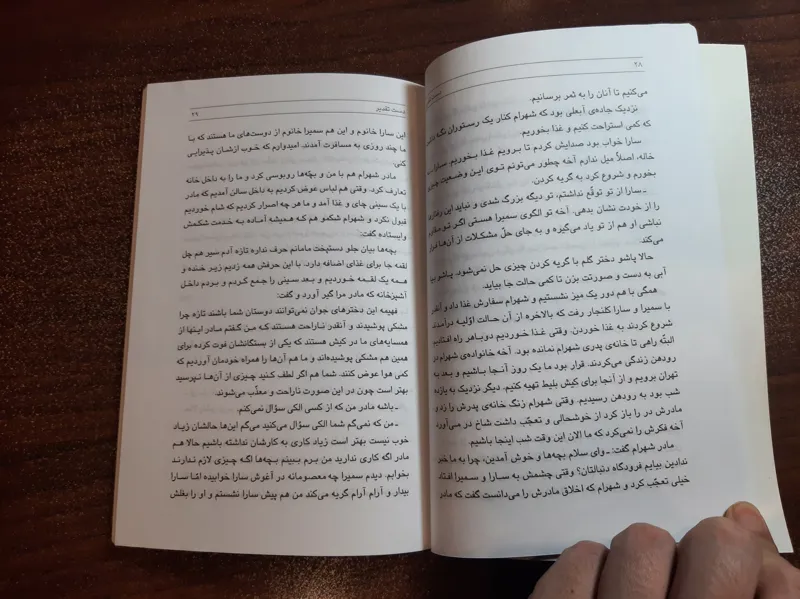 ۲۸
می‌کنیم تا آنان را به ثمر برسانیم.
نزدیک جاده‌ی آبعلی بود که شهرام کنار یک رستوران نگه داشت
که کمی استراحت کنیم و غذا بخوریم.
سارا خواب بود صدایش کردم تا برویم غذا بخوریم. سارا
خاله، اصلاً میل ندارم آخه چطور می‌تونم توی این وضعیت چیزی
بخورم و شروع کرد به گریه کردن.
ـ سارا از تو توقّع نداشتم، تو دیگه بزرگ شدی و نباید این رفتار
را از خودت نشان بدهی. آخه تو الگوی سمیرا هستی اگر تو مقاوم
نباشی او هم از تو یاد می‌گیره و به جای حلّ مشکلات از آن‌ها فرار
می‌کند.
حالا پاشو دختر گلم با گریه کردن چیزی حل نمی‌شود. پاشو بیا
آبی به دست و صورتت بزن تا کمی حالت جا بیاید.
همگی با هم دور یک میز نشستیم و شهرام سفارش غذا داد و آنقدر
با سمیرا و سارا کلنجار رفت که بالاخره از آن حالت اوّلیه درآمدند
شروع کردند به غذا خوردن. وقتی غذا خوردیم دوباره راه افتادیم
البتّه راهی تا خانه‌ی پدری شهرام نمانده بود. آخه خانواده‌ی شهرام در
رودهن زندگی می‌کردند. قرار بود ما یک روز آنجا باشیم و بعد به
تهران برویم و از آنجا برای کیش بلیط تهیه کنیم. دیگر نزدیک به یازده
شب بود به رودهن رسیدیم. وقتی شهرام زنگ خانه‌ی پدرش را زد و
مادرش در را باز کرد از خوشحالی و تعجّب داشت شاخ در می‌آورد
آخه فکرش را نمی‌کرد که ما الان این وقت شب اینجا باشیم.
مادر شهرام گفت: ـ وای سلام بچه‌ها و خوش آمدین، چرا به ما خبر
ندادین بیایم فرودگاه دنبالتان؟ وقتی چشمش به سارا و سمیرا افتاد
خیلی تعجّب کرد و شهرام که اخلاق مادرش را می‌دانست گفت که مادر
دست تقدیر
۲۹
این سارا خانوم و این هم سمیرا خانوم از دوست‌های ما هستند که با
ما چند روزی به مسافرت آمدند. امیدوارم که خوب ازشان پذیرایی
کنی.
مادر شهرام هم با من و بچّه‌ها روبوسی کرد و ما را به داخل خانه
تعارف کرد. وقتی هم لباس عوض کردیم به داخل سالن آمدیم که مادر
با یک سینی چای و غذا آمد و ما هر چه اصرار کردیم که شام خوردیم
قبول نکرد و شهرام شکمو هم که همیشه آماده به خدمت شکمش
وایستاده گفت:
بچه‌ها بیان جلو دستپخت مامانم حرف نداره تازه آدم سیر هم چل
لقمه جا برای غذای اضافه دارد. با این حرفش همه زدیم زیر خنده و
همه یک لقمه خوردیم و بعد سینی را جمع کردم و بردم داخل
آشپزخانه که مادر مرا گیر آورد و گفت:
ـ فهیمه این دخترهای جوان نمی‌توانند دوستان شما باشند تازه چرا
مشکی پوشیدند و آنقدر ناراحت هستند که من گفتم مادر اینها از
همسایه‌های ما در کیش هستند که یکی از بستگانشان فوت کرده برای
همین هم مشکی پوشیده‌اند و ما هم آن‌ها را همراه خودمان آوردیم که
کمی هوا عوض کنند. شما هم اگر لطف کنید چیزی از آن‌ها نپرسید
بهتر است چون در این صورت ناراحت و معذّب می‌شوند.
ـ باشه مادر من که از کسی الکی سؤال نمی‌کنم.
ـ من که نمی‌گم شما الکی سؤال می‌کنید می‌گم این‌ها حالشان زیاد
خوب نیست بهتر است زیاد کاری به کارشان نداشته باشیم حالا هم
مادر اگه کاری ندارید من برم ببینم بچه‌ها اگه چیزی لازم ندارند
بخوابم. دیدم سمیرا چه معصومانه در آغوش سارا خوابیده امّا سارا
بیدار و آرام آرام گریه می‌کند من هم پیش سارا نشستم و او را بغلش